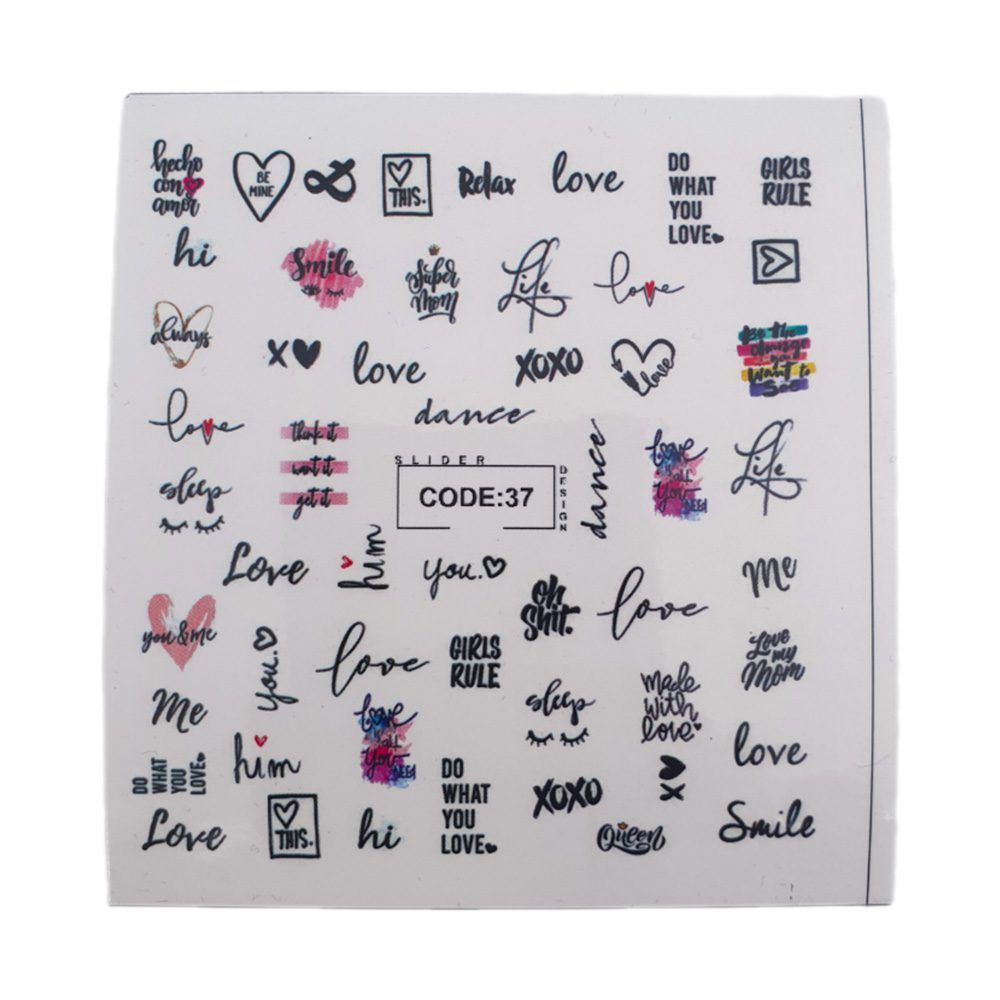 hecho
con
amor
BE
MINE
&
THIS.
Relax
love
DO
WHAT
YOU
LOVE
GIRLS
RULE
hi
Smile
Super
Mom
Life
love
always
X
love
XOXO
love
Be the
change
you
want to
See
love
think it
want it
get it
dance
SLIDER
CODE:37
DESIGN
dance
love
is all
You
NEED
Life
sleep
Love
him
you.
oh
Shit.
love
Me
you & me
you.
love
GIRLS
RULE
sleep
made
with
love
Love
my
Mom
Me
DO
WHAT
YOU
LOVE
him
love
is all
You
NEED
DO
WHAT
YOU
LOVE
XOXO
X
love
Love
THIS.
hi
Queen
Smile